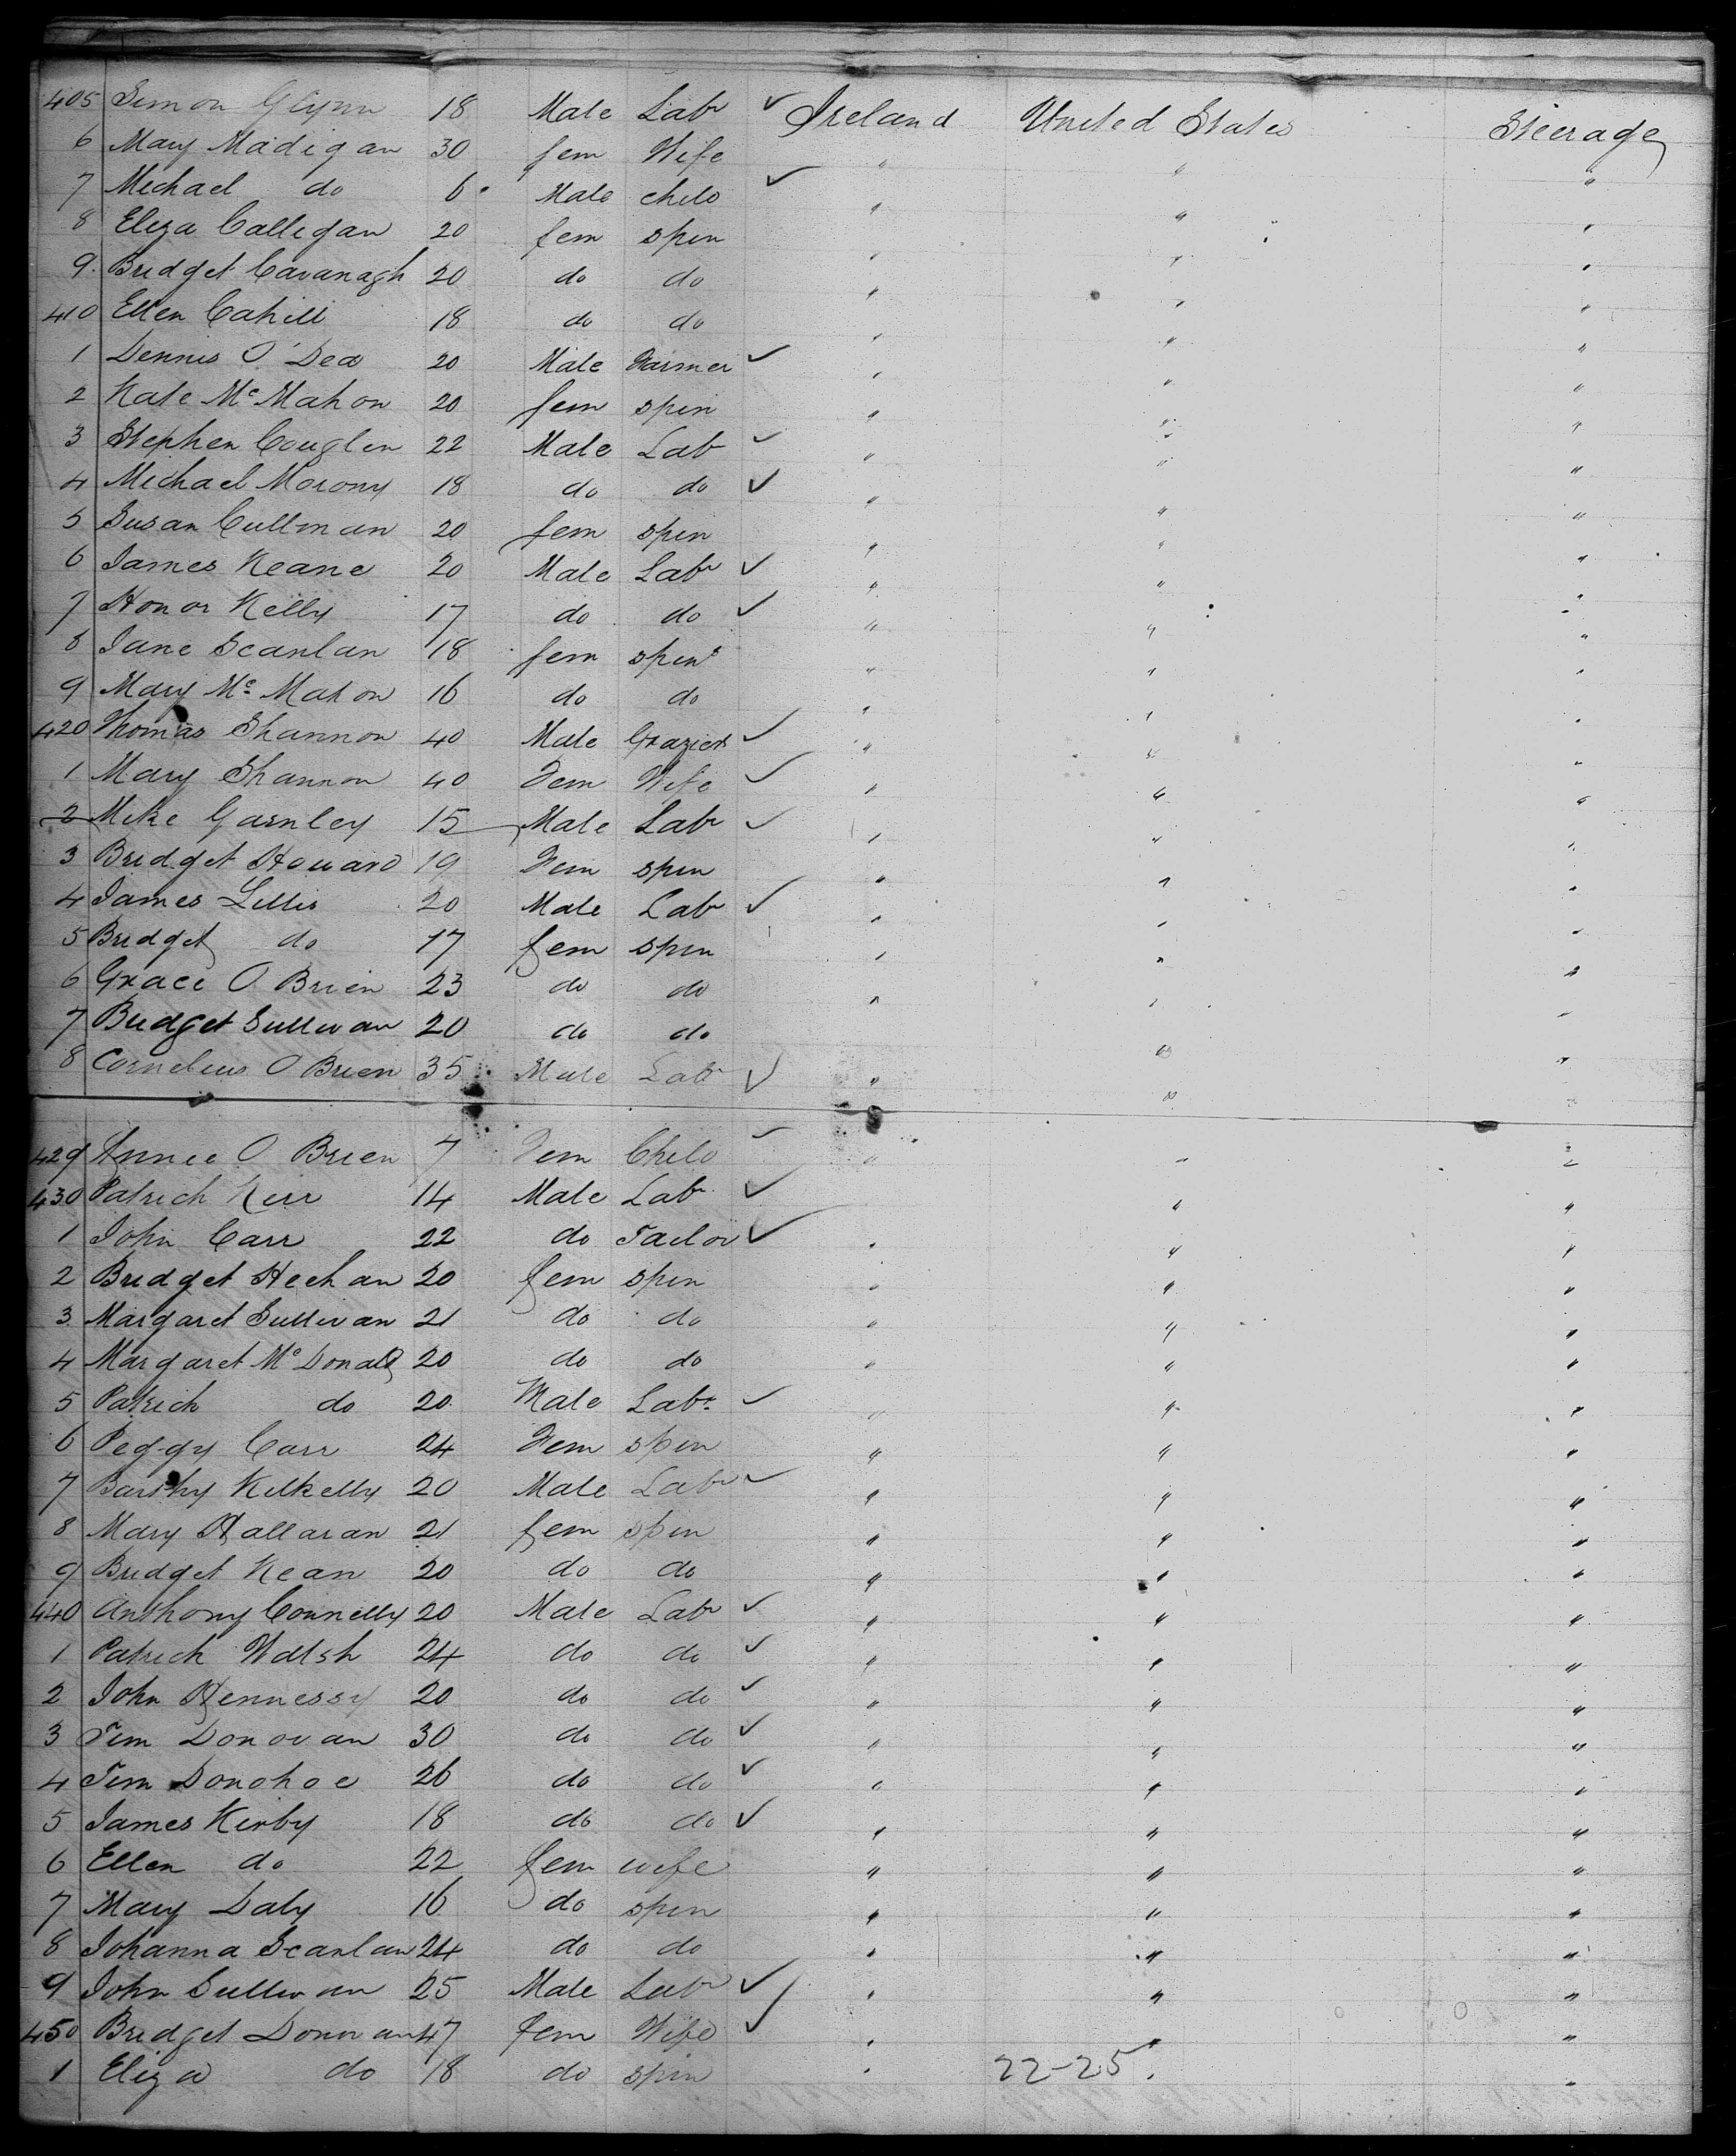 405 Simon Glynn 18 Male Labr ✓ Ireland United States Steerage
6 Mary Madigan 30 fem Wife " " "
7 Michael do 6 Male child ✓ " " "
8 Eliza Calligan 20 fem spin " " "
9. Bridget Cavanagh 20 do do " " "
410 Ellen Cahill 18 do do " " "
1 Dennis O'Dea 20 Male Farmer ✓ " " "
2 Kate McMahon 20 fem spin " " "
3 Stephen Couglin 22 Male Lab ✓ " " "
4 Michael Morony 18 do do ✓ " " "
5 Susan Cullinan 20 fem spin " " "
6 James Keane 20 Male Labr ✓ " " "
7 Honor Kelly 17 do do ✓ " " "
8 Jane Scanlan 18 fem spinr " " "
9 Mary Mc Mahon 16 do do " " "
420 Thomas Shannon 40 Male Grazier ✓ " " "
1 Mary Shannon 40 Fem Wife ✓ " " "
2 Mike Garnley 15 Male Labr ✓ " " "
3 Bridget Howard 19 Fem spin " " "
4 James Lillis 20 Male Labr ✓ " " "
5 Bridget do 17 fem spin " " "
6 Grace O Brien 23 do do " " "
7 Bridget Sullivan 20 do do " " "
8 Cornelius O Brien 35 Male Labr ✓ " " "
429 Annie O Brien 7 Fem Child ✓ " " "
430 Patrick Kerr 14 Male Labr ✓ " "
1 John Carr 22 do Tailor ✓ " " "
2 Bridget Heehan 20 fem spin " " "
3. Margaret Sullivan 21 do do " " "
4 Margaret McDonald 20 do do " " "
5 Patrick do 20 Male Labr ✓ " " "
6 Peggy Carr 24 Fem spin " " "
7 Barthy Kilkelly 20 Male Labr ✓ " " "
8 Mary Hallaran 21 fem spin " " "
9 Bridget Kean 20 do do " " "
440 Anthony Connelly 20 Male Labr ✓ " " "
1 Patrick Walsh 24 do do ✓ " " "
2 John Hennessy 20 do do ✓ " " "
3 Tim Donovan 30 do do ✓ " " "
4 Tim Donohoe 26 do do ✓ " " "
5 James Kirby 18 do do ✓ " " "
6 Ellen do 22 fem wife " " "
7 Mary Daly 16 do spin " " "
8 Johanna Scanlan 24 do do " " "
9 John Sullivan 25 Male Labr ✓ " " "
450 Bridget Donovan 47 fem Wife ✓ " " "
1 Eliza do 18 do spin " 22-25 " "